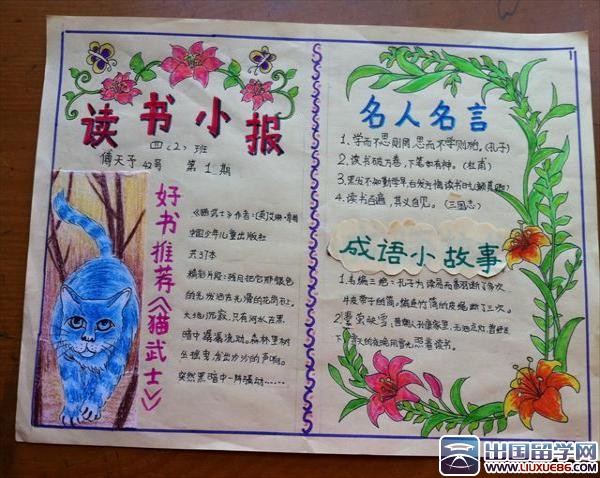 读书小报
四〈2〉班
傅天予 42号 第1期
好书推荐《猫武士》
《猫武士》作者:(英)艾琳·
中国少年儿童出版社
共37本
精彩片段:残月把它那银色
的光发洒在光滑的花岗石上。
大地沉寂,只有河水在黑
暗中潺潺流动。森林里树
丛摇曳,发出沙沙的声响。
突然黑暗中一阵骚动……
名人名言
1、学而不思则罔,思而不学则殆。(孔子)
2、读书破万卷,下笔如有神。(杜甫)
3、黑发不知勤学早,白发方悔读书时。(颜真卿)
4、读书百遍,其义自见。(三国志)
成语小故事
1、韦编三绝:孔子为读易而翻断了多次
牛皮带子的简。编连竹简的皮绳断了三次。
2、萤窗映雪:晋朝人书康家里,无油点灯,曾经在
下的冬晚用雪光照着读书。
出国留学网
www.liuxue86.com